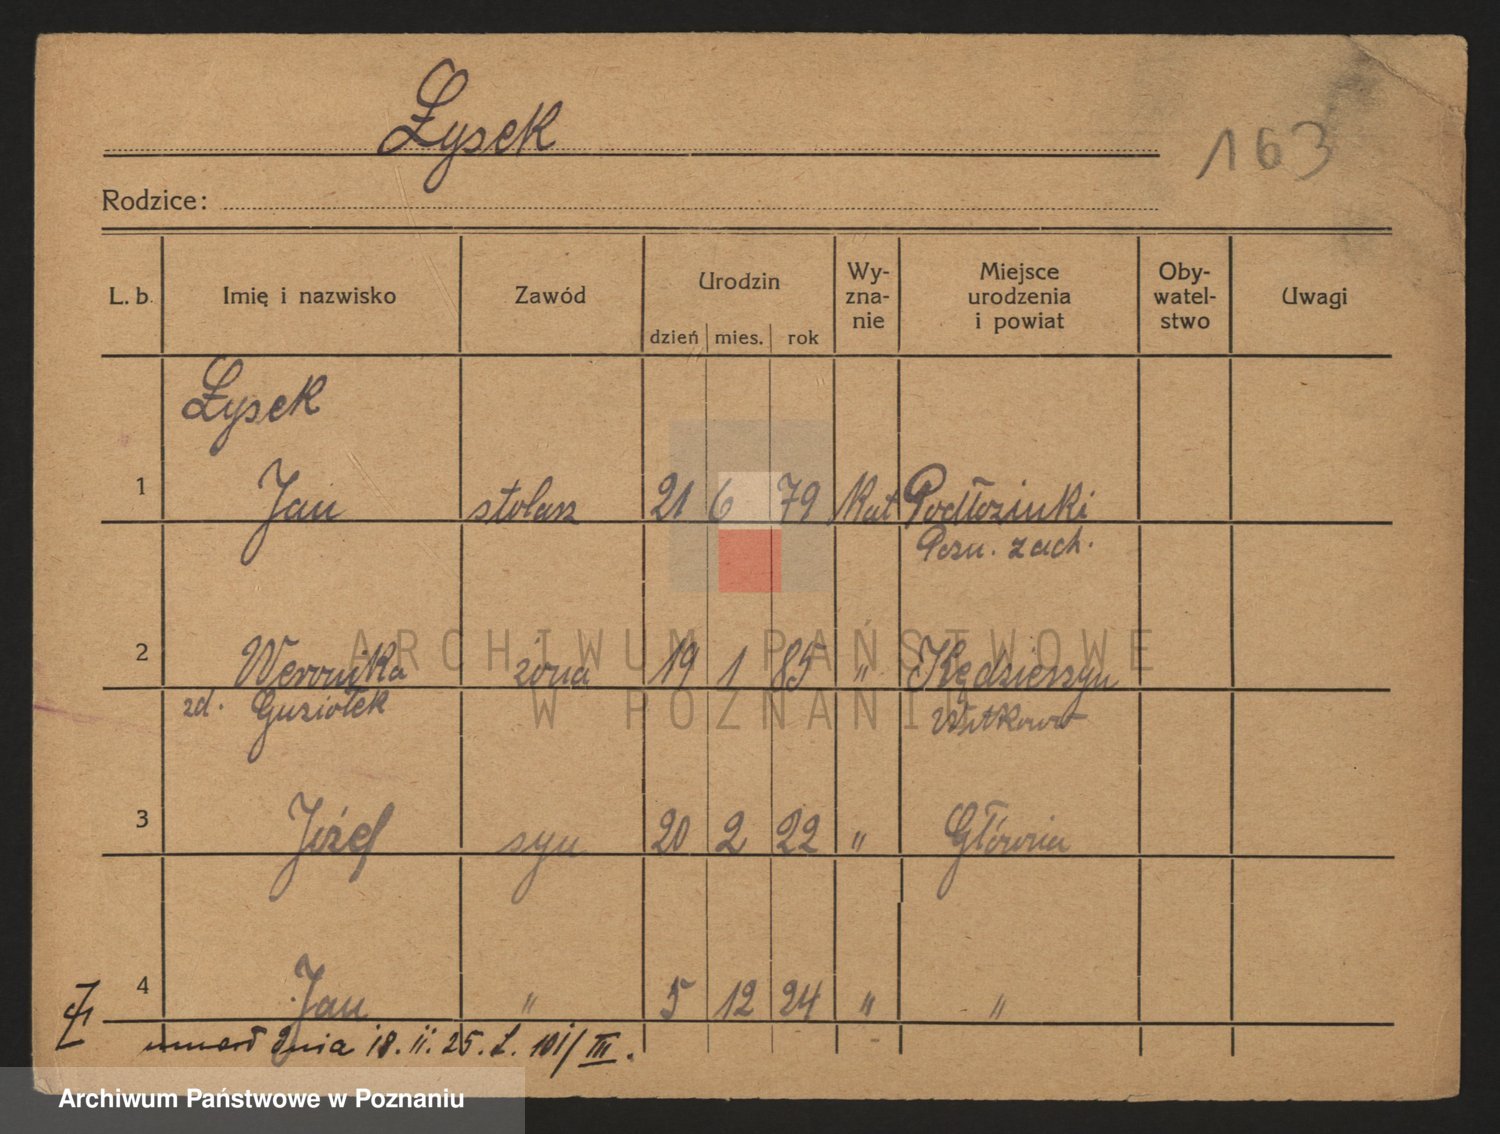 Łysek
163
Rodzice:
L. b. Imię i nazwisko Zawód Urodzin dzień mies. rok Wy-zna-nie Miejsce urodzenia i powiat Oby-watel-stwo Uwagi
Łysek
1 Jan stolarz 21 6 79 Kat Podłozinki
Pozn. zach.
2 Weronika żona 19 1 85 " Kędzierzyn
zd. Gusiołek Witkowo
3 Józef syn 20 2 22 " Główna
4 Jan " 5 12 24 " "
umarł dnia 18. ii. 25. L. 101/III.
ARCHIWUM PAŃSTWOWE
W POZNANIU
Archiwum Państwowe w Poznaniu